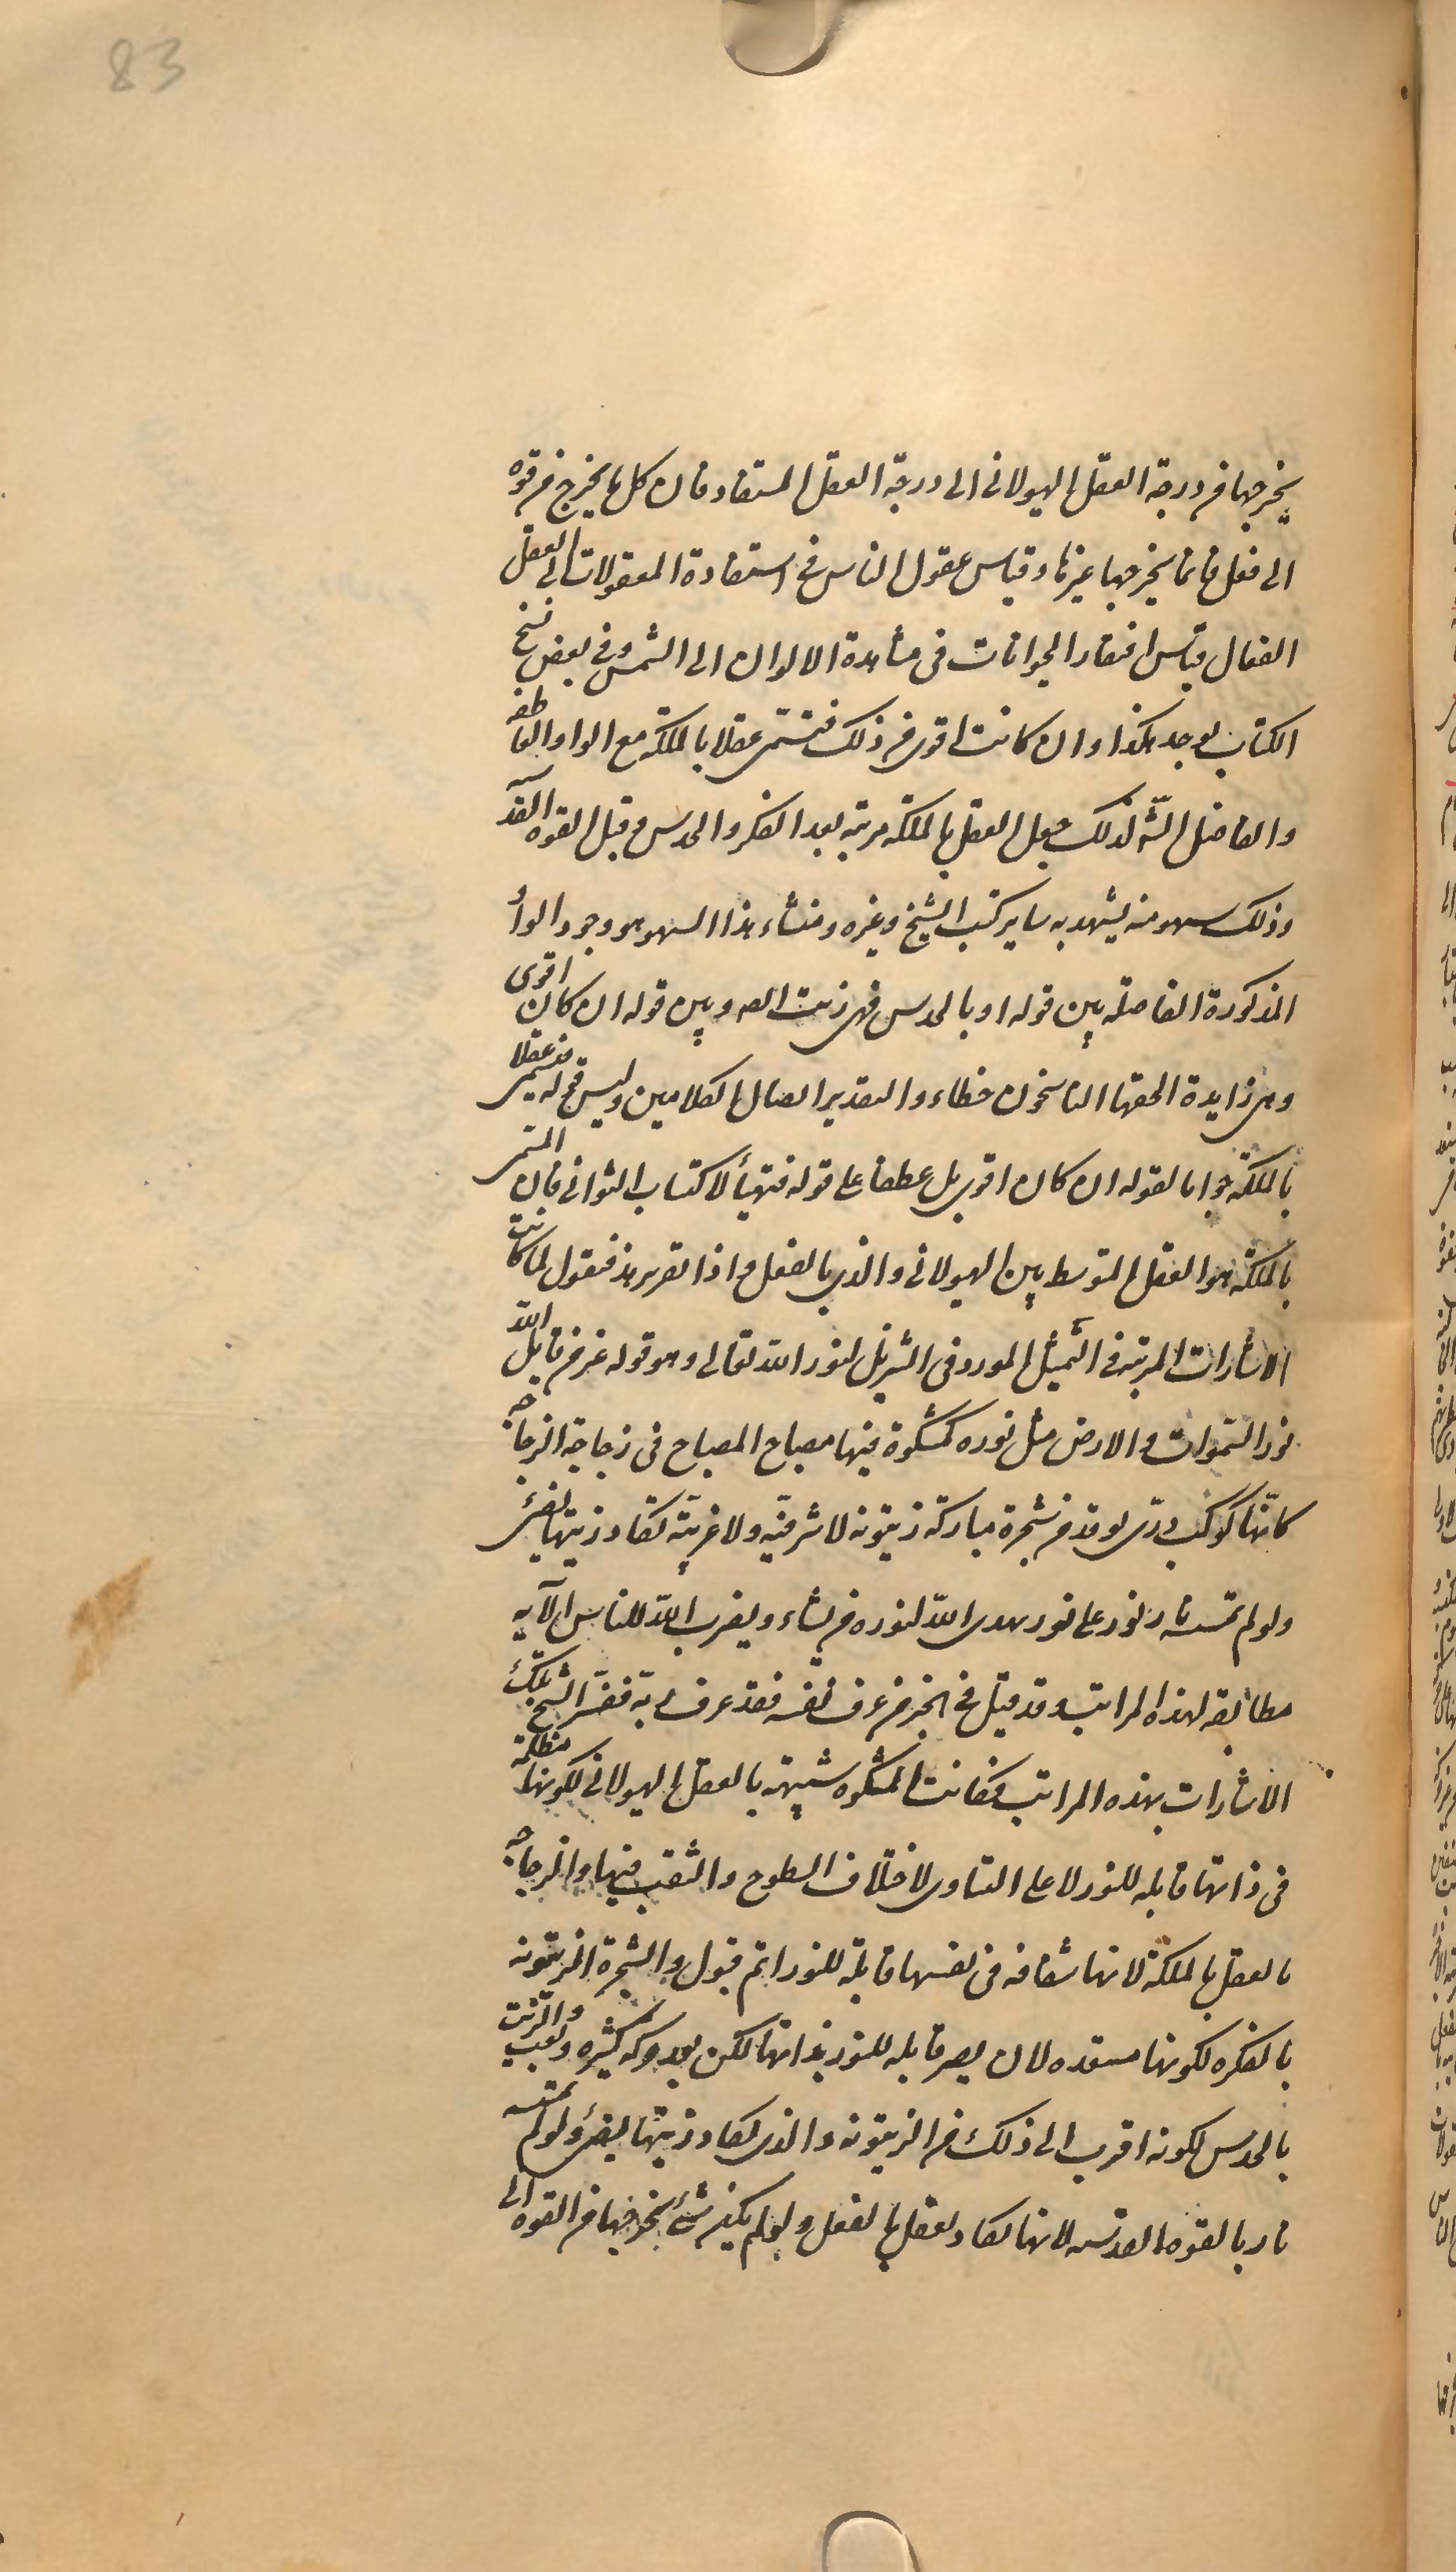 83
يخرجها من درجة العقل الهيولانى الى درجة العقل المستفاد فان كل ما يخرج من قوه
الى فعل فانما يخرجها غيرها وقياس عقول الناس فى استفادة المعقولات الى العقل
الفعال قياس افتقار الحيوانات فى مشاهدة الالوان الى الشمس وفى بعض نسخ
الكتاب يوجد هكذا وان كانت اقوى من ذلك فتسمى عقلا بالملكة مع الواو العاطفه
والفاضل الشه لذلك جعل العقل بالملكة مرتبه بعد الفكر والحدس وقبل القوه القدسيه
وذلك سهو منه يشهد به ساير كتب الشيخ وغيره ومنشاء هذا السهو هو وجود الواو
المذكورة الفاصله بين قوله او بالحدس فهى زيت ايضا وبين قوله ان كان اقوى
وهى زايدة الحقها الناسخون خطاء والتقدير اتصال الكلامين وليس قوله فتسمى عقلا
بالملكة جوابا لقوله ان كان اقوى بل عطفا على قوله فتهيأ لاكتساب الثوانى فان المسمى
بالملكة هو العقل المتوسط بين الهيولانى والذى بالفعل واذا تقرر هذ فنقول لما كانت
الاشارات المرتبه فى التمثيل المورد فى التنزيل لنور الله تعالى وهو قوله عز من قايل الله
نور السموات والارض مثل نوره كمشكوة فيها مصباح المصباح فى زجاجة الزجاجه
كانها كوكب درى يوقد من شجرة مباركة زيتونه لا شرقيه ولا غربية يكاد زيتها يضئ
ولو لم تمسسه نار نور على نور يهدى الله لنوره من يشاء ويضرب الله للناس الآيه
مطابقه لهذه المراتب وقد قيل فى الخبر من عرف نفسه فقد عرف ربه ففسر الشيخ تلك
الاشارات بهذه المراتب فكانت المشكوه شبيهة بالعقل الهيولانى لكونها مظلمة
فى ذاتها قابله للنور لا على التساوى لاختلاف السطوح والثقب فيها والزجاجه
بالعقل بالملكة لانها شفافه فى نفسها قابلة للنور اتم قبول والشجرة الزيتونه
بالفكره لكونها مستعده لان يصير قابله للنور بذاتها لكن بعد حركه كثيره وتعب والزيت
بالحدس لكونه اقرب الى ذلك من الزيتونه والذى يكاد زيتها يضئ ولو لم تمسسه
نار بالقوه القدسيه لانها يكاد يعقل بالفعل ولو لم يكن شئ يخرجها من القوه الى